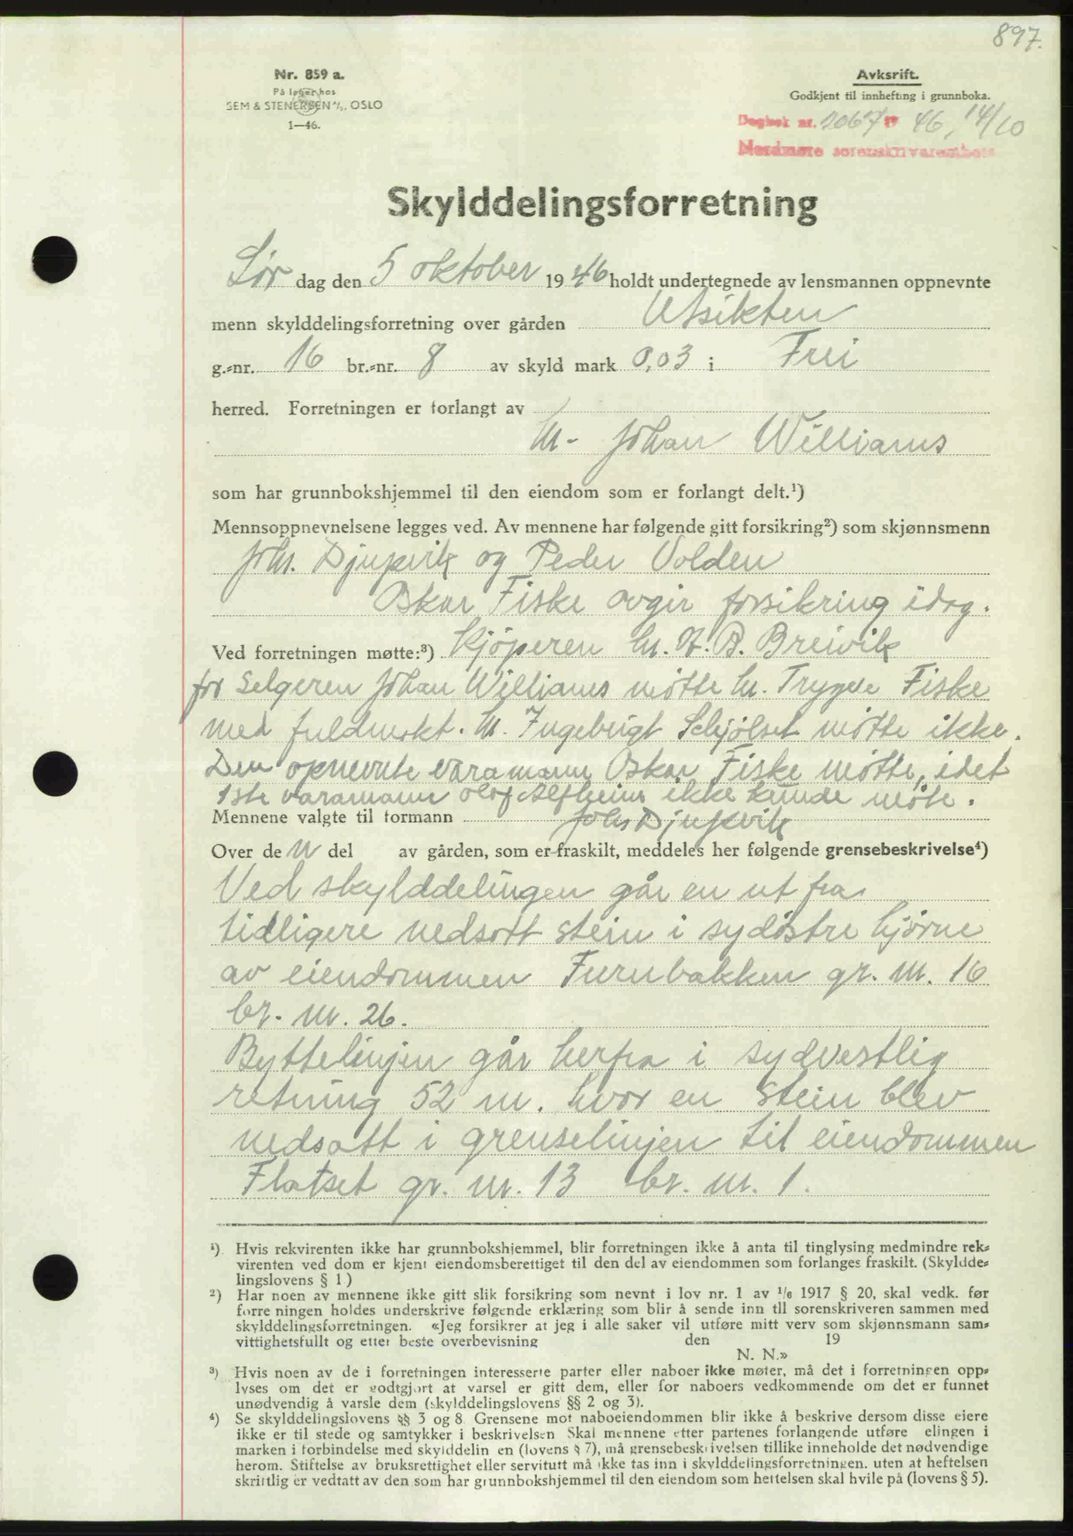 897.
Nr. 859 a.
På lager hos
SEM & STENERSEN A/S, OSLO
1—46.
Avksrift.
Godkjent til innhefting i grunnboka.
Dagbok nr. 2067 19 46, 14/10
Nordmøre sorenskriverembete
Skylddelingsforretning
Lør dag den 5 oktober 1946 holdt undertegnede av lensmannen oppnevnte
menn skylddelingsforretning over gården Utsikten
g.-nr. 16 br.-nr. 8 av skyld mark 0,03 i Frei
herred. Forretningen er forlangt av
hr. Johan Williams
som har grunnbokshjemmel til den eiendom som er forlangt delt.¹)
Mennsoppnevnelsene legges ved. Av mennene har følgende gitt forsikring²) som skjønnsmenn
Johs. Djupvik og Peder Volden
Oskar Fiske avgir forsikring idag.
Ved forretningen møtte:³) Kjøperen hr. N. B. Breivik
for selgeren Johan Williams møtte hr. Trygve Fiske
med fuldmakt. hr. Ingebrigt Schjølset møtte ikke.
Den opnevnte varamann Oskar Fiske møtte, idet
1ste varamann Olof Alfheim ikke kunde møte.
Mennene valgte til formann Johs Djupvik
Over de n del av gården, som er fraskilt, meddeles her følgende grensebeskrivelse⁴)
Ved skylddelingen går en ut fra
tidligere nedsatt stein i sydöstre hjörne
av eiendommen Furubakken gr. nr. 16
br. nr. 26.
Byttelinjen går herfra i sydvestlig
retning 52 m. hvor en stein blev
nedsatt i grenselinjen til eiendommen
Flatset gr. nr. 13 br. nr. 1.
¹) Hvis rekvirenten ikke har grunnbokshjemmel, blir forretningen ikke å anta til tinglysing medmindre rek-
virenten ved dom er kjent eiendomsberettiget til den del av eiendommen som forlanges fraskilt. (Skyldde-
lingslovens § 1)
²) Har noen av mennene ikke gitt slik forsikring som nevnt i lov nr. 1 av 1/6 1917 § 20, skal vedk. før
forretningen holdes underskrive følgende erklæring som blir å sende inn til sorenskriveren sammen med
skylddelingsforretningen. «Jeg forsikrer at jeg i alle saker vil utføre mitt verv som skjønnsmann sam-
vittighetsfullt og etter beste overbevisning den 19
N. N.»
³) Hvis noen av de i forretningen interesserte parter eller naboer ikke møter, må det i forretningen opp-
lyses om det er godtgjort at varsel er gitt dem, eller for naboers vedkommende om det er funnet
unødvendig å varsle dem (skylddelingslovens §§ 2 og 3).
⁴) Se skylddelingslovens §§ 3 og 8. Grensene mot naboeiendommen blir ikke å beskrive dersom disse eiere
ikke er til stede og samtykker i beskrivelsen Skal mennene etter partenes forlangende utføre elingen i
marken i forbindelse med skylddelin en (lovens § 7), må grensebeskrivelsen tillike inneholde det nødvendige
herom. Stiftelse av bruksrettighet eller servitutt må ikke tas inn i skylddelingsforretningen. uten at heftelsen
skriftlig er vedtatt av den som har grunnbokshjemmel til den eiendom som heftelsen skal hvile på (lovens § 5).